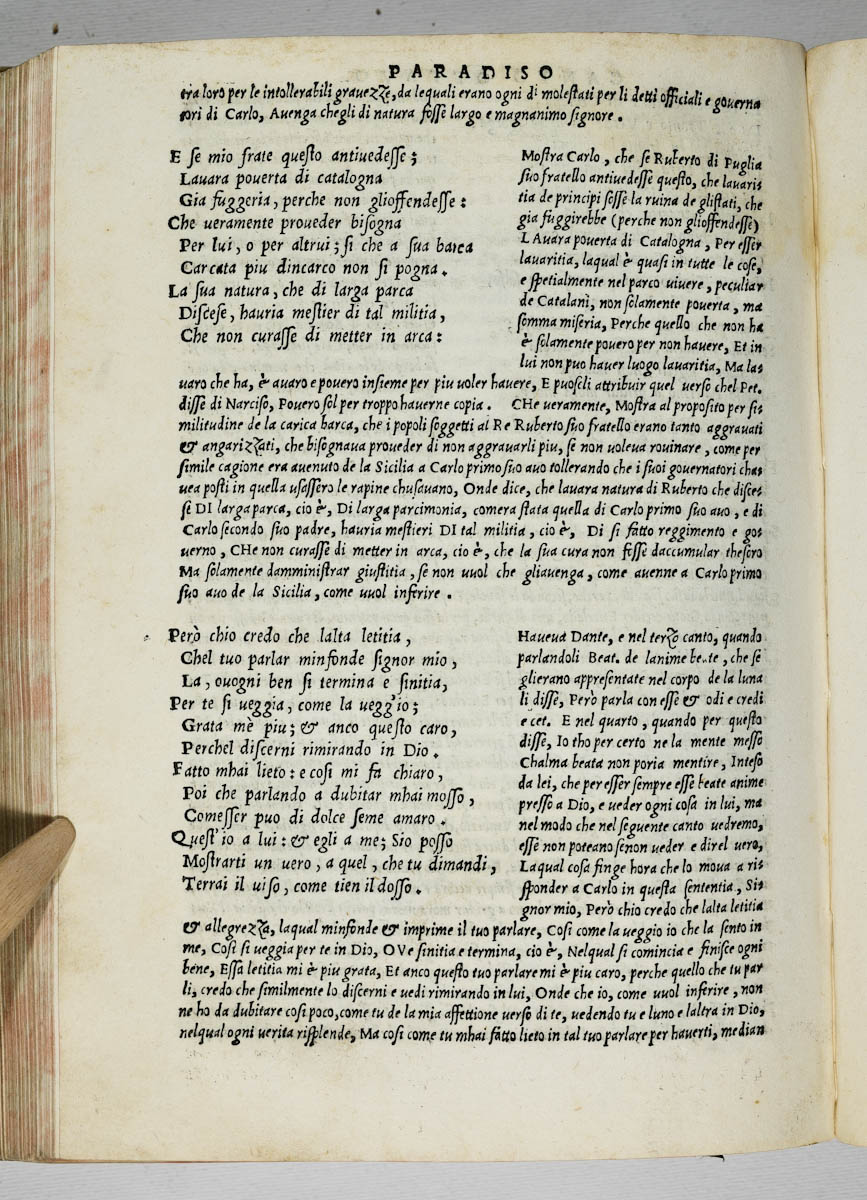 PARADISO
tra loro per le intollerabili grauezze, da lequali erano ogni di molestati per li detti officiali e gouerna
tori di Carlo, Auenga chegli di natura fosse largo e magnanimo signore.
E se mio frate questo antiuedesse;
Lauara pouerta di catalogna
Gia fuggeria, perche non glioffendesse:
Che ueramente proueder bisogna
Per lui, o per altrui; si che a sua barca
Carcata piu dincarco non si pogna.
La sua natura, che di larga parca
Discese, hauria mestier di tal militia,
Che non curasse di metter in arca:
Mostra Carlo, che se Ruberto di Puglia
suo fratello antiuedesse questo, che lauari-
tia de principi fosse la ruina de glistati, che
gia fuggirebbe (perche non glioffendesse)
LAuara pouerta di Catalogna, Per esser
lauaritia, laqual è quasi in tutte le cose,
e spetialmente nel parco uiuere, peculiar
de Catalani, non solamente pouerta, ma
somma miseria, Perche quello che non ha
è solamente pouero per non hauere, Et in
lui non puo hauer luogo lauaritia, Ma la-
uaro che ha, è auaro e pouero insieme per piu uoler hauere, E puoseli attribuir quel uerso chel Pet.
disse di Narciso, Pouero sol per troppo hauerne copia. CHe ueramente, Mostra al proposito per si-
militudine de la carica barca, che i popoli soggetti al Re Ruberto suo fratello erano tanto aggrauati
& angarizzati, che bisognaua proueder di non aggrauarli piu, se non uoleua rouinare, come per
simile cagione era auenuto de la Sicilia a Carlo primo suo auo tollerando che i suoi gouernatori cha-
uea posti in quella usassero le rapine chusauano, Onde dice, che lauara natura di Ruberto che disce-
se DI larga parca, cio è, Di larga parcimonia, comera stata quella di Carlo primo suo auo, e di
Carlo secondo suo padre, hauria mestieri DI tal militia, cio è, Di si fatto reggimento e go-
uerno, CHe non curasse di metter in arca, cio è, che la sua cura non fosse daccumular thesoro
Ma solamente damministrar giustitia, se non uuol che gliauenga, come auenne a Carlo primo
suo auo de la Sicilia, come uuol inferire.
Però chio credo che lalta letitia,
Chel tuo parlar minfonde signor mio,
La, ouogni ben si termina e sinitia,
Per te si ueggia, come la uegg'io;
Grata mè piu; & anco questo caro,
Perchel discerni rimirando in Dio.
Fatto mhai lieto: e cosi mi fa chiaro,
Poi che parlando a dubitar mhai mosso,
Comesser puo di dolce seme amaro.
Quest'io a lui: & egli a me; Sio posso
Mostrarti un uero, a quel, che tu dimandi,
Terrai il uiso, come tien il dosso.
Haueua Dante, e nel terzo canto, quando
parlandoli Beat. de lanime beate, che se
glierano appresentate nel corpo de la luna
li disse, Però parla con esse & odi e credi
e cet. E nel quarto, quando per questo
disse, Io tho per certo ne la mente messo
Chalma beata non poria mentire, Inteso
da lei, che per esser sempre esse beate anime
presso a Dio, e ueder ogni cosa in lui, ma
nel modo che nel seguente canto uedremo,
esse non poteano senon ueder e dirci uero,
Laqual cosa finge hora che lo moua a ri-
sponder a Carlo in questa sententia, Si-
gnor mio, Però chio credo che lalta letitia
& allegrezza, laqual minfonde & imprime il tuo parlare, Cosi come la ueggio io che la sento in
me, Cosi si ueggia per te in Dio, OVe sinitia e termina, cio è, Nelqual si comincia e finisce ogni
bene, Essa letitia mi è piu grata, Et anco questo tuo parlare mi è piu caro, perche quello che tu par
li, credo che similmente lo discerni e uedi rimirando in lui, Onde che io, come uuol inferire, non
ne ho da dubitare cosi poco, come tu de la mia affettione uerso di te, uedendo tu e luno e laltra in Dio,
nelqual ogni uerita risplende, Ma cosi come tu mhai fatto lieto in tal tuo parlare per hauerti, median